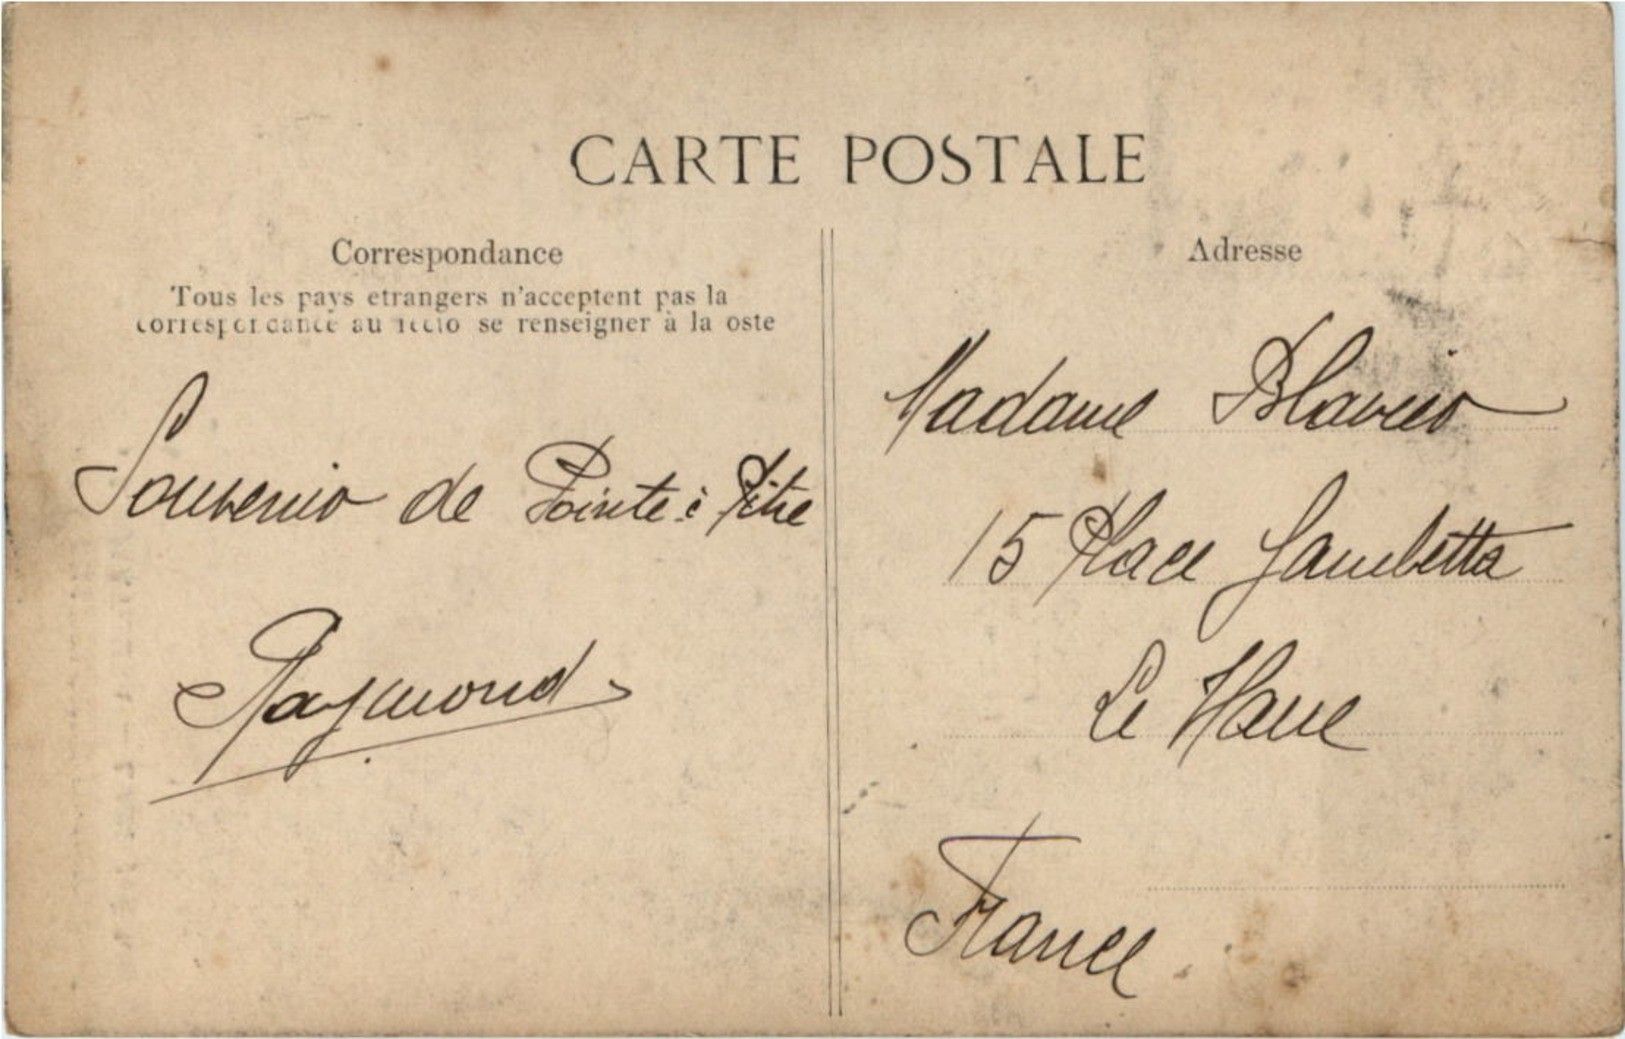 CARTE POSTALE
Correspondance
Tous les pays etrangers n'acceptent pas la
correspondance au recto se renseigner à la oste
Souvenir de Pointe à Pitre
Raymond
Adresse
Madame Blavier
15 Place Gambetta
Le Havre
France